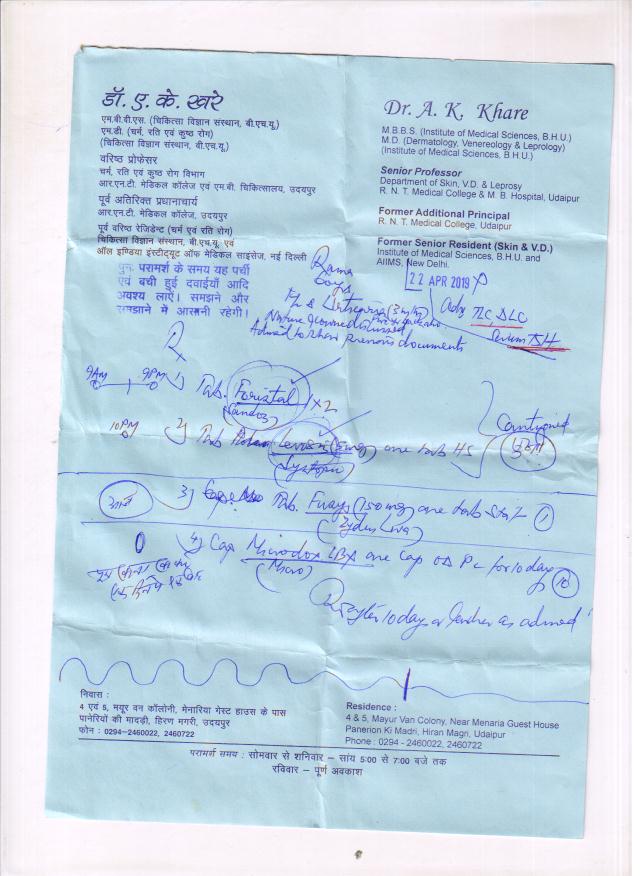 डॉ. ए. के. खरे
एम.बी.बी.एस. (चिकित्सा विज्ञान संस्थान, बी.एच.यू.)
एम.डी. (चर्म, रति एवं कुष्ठ रोग)
(चिकित्सा विज्ञान संस्थान, बी.एच.यू.)
वरिष्ठ प्रोफेसर
चर्म, रति एवं कुष्ठ रोग विभाग
आर.एन.टी. मेडिकल कॉलेज एवं एम.बी. चिकित्सालय, उदयपुर
पूर्व अतिरिक्त प्रधानाचार्य
आर.एन.टी. मेडिकल कॉलेज, उदयपुर
पूर्व वरिष्ठ रेजिडेन्ट (चर्म एवं रति रोग)
चिकित्सा विज्ञान संस्थान, बी.एच.यू. एवं
ऑल इण्डिया इंस्टीट्यूट ऑफ मेडिकल साइसेज, नई दिल्ली
Dr. A. K. Khare
M.B.B.S. (Institute of Medical Sciences, B.H.U.)
M.D. (Dermatology, Venereology & Leprology)
(Institute of Medical Sciences, B.H.U.)
Senior Professor
Department of Skin, V.D. & Leprosy
R. N. T. Medical College & M. B. Hospital, Udaipur
Former Additional Principal
R. N. T. Medical College, Udaipur
Former Senior Resident (Skin & V.D.)
Institute of Medical Sciences, B.H.U. and
AIIMS, New Delhi.
पुनः परामर्श के समय यह पर्ची
एवं बची हुई दवाईयाँ आदि
अवश्य लाऐं। समझाने और
समझाने मे आसानी रहेगी।
22 APR 2019
Adv TLC, DLC
Advised to show previous documents
Rx
9AM 9PM 1) Tab. 1 x 2
(Sandoz)
10PM 2) Tab (5mg) one tab HS
3) Tab. (150mg) one tab stat 1
(Zydus
4) Cap Microdox LBX one cap OD PC for 10 days 10
(Micro)
R after 10 days or earlier as advised
निवास :
4 एवं 5, मयूर वन कॉलोनी, मेनारिया गेस्ट हाउस के पास
पानेरियों की मादड़ी, हिरण मगरी, उदयपुर
फोन : 0294-2460022, 2460722
Residence :
4 & 5, Mayur Van Colony, Near Menaria Guest House
Panerion Ki Madri, Hiran Magri, Udaipur
Phone : 0294 - 2460022, 2460722
परामर्श समय : सोमवार से शनिवार – सांय 5:00 से 7:00 बजे तक
रविवार – पूर्ण अवकाश